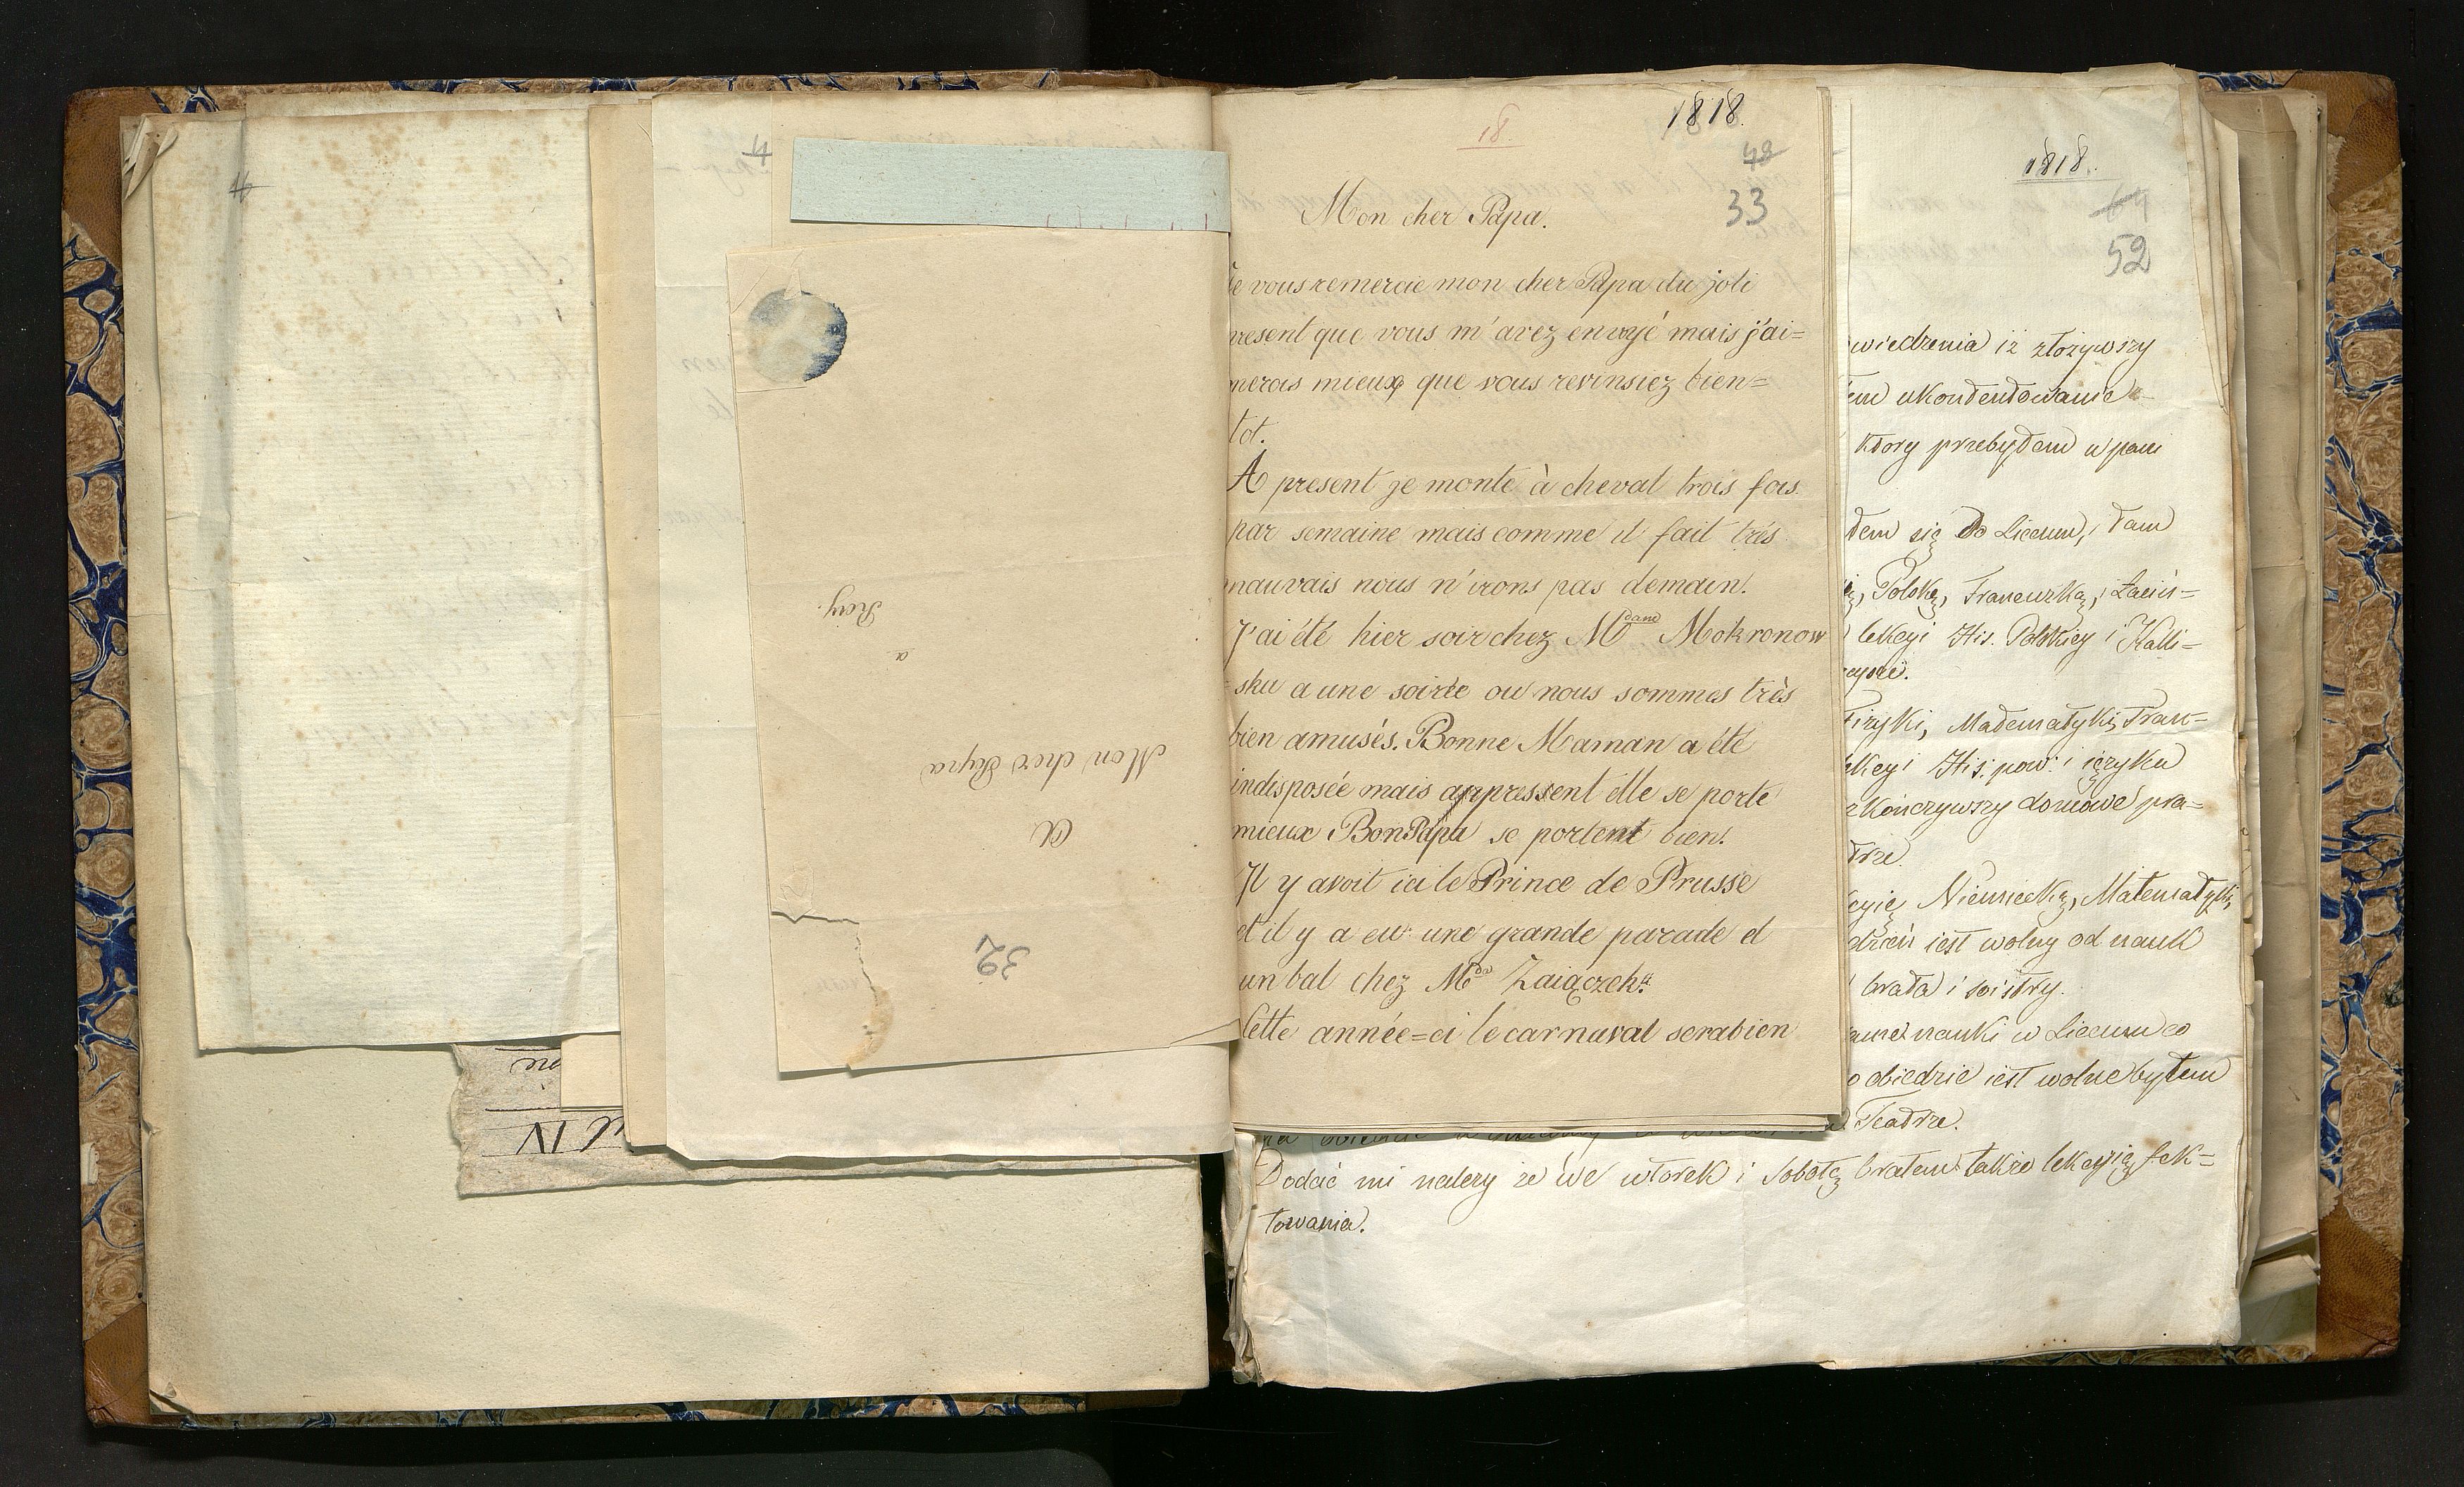 4
4
A
Mon cher Papa
a
Ray.
32
ul IV
18.
1818.
48
33
Mon cher Papa.
Je vous remercie mon cher Papa du joli
present que vous m'avez envoyé mais j'ai=
merois mieux que vous revinsiez bien=
tot.
A present je monte à cheval trois fois
par semaine mais comme il fait très
mauvais nous n'irons pas demain.
J'ai été hier soir chez Mdame Mokronow
ska a une soirée ou nous sommes très
bien amusés. Bonne Maman a été
indisposée mais appressent elle se porte
mieux Bon Papa se portent bien.
Il y avoit ici le Prince de Prusse
et il y a eu une grande parade et
un bal chez Mde Zaiączek.
Cette année=ci le carnaval sera bien
1818.
64
52
wiedzenia iż złożywszy
em ukontentowanie
który przebyłem u pani
łem się do Liceum, i tam
Polską, Francuzką, i Łaciń=
lekcyi His. Polskiey i Kalli=
Fizyki, Matematyki, Fran=
lekcyi His: pow: i ięzyka
zkończywszy domowe pra=
trze.
cyię Niemiecką, Matematyki,
dzień iest wolny od nauk
brata i siostry.
nauki w Liceum co
o obiedzie iest wolne byłem
Teatrze.
Dodać mi należy że we wtorek i sobotę bratem także lekcyię fek=
towania.